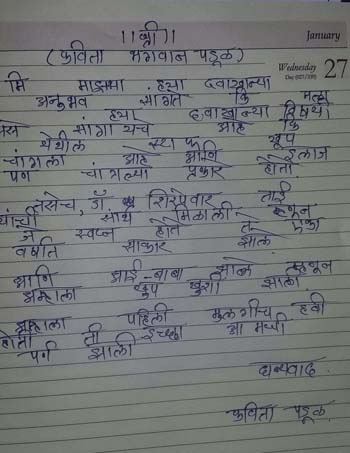 ।।श्री।।
January
(कविता भगवान पडूळ)
Wednesday
27
मि माझ्या हसा दवाखान्या
अनुभव सांगते कि मला
हसा दवाखान्या विषयी
सांगायचे आहे कि
येथील स्टाफ खूप
चांगला आहे आणि इलाज
पण चांगल्या प्रकारे होतो
तसेच, डॉ. शिरपेवार ताई
यांची साथ मिळाली म्हणून
जे स्वप्न होते ते एका
वर्षात साकार झाले
आणि आई-बाबा झालो म्हणून
आम्हाला खूप खुशी झाली
आम्हाला पहिली मुलगीच हवी
होती ती इच्छा
पण झाली
धन्यवाद
कविता पडूळ